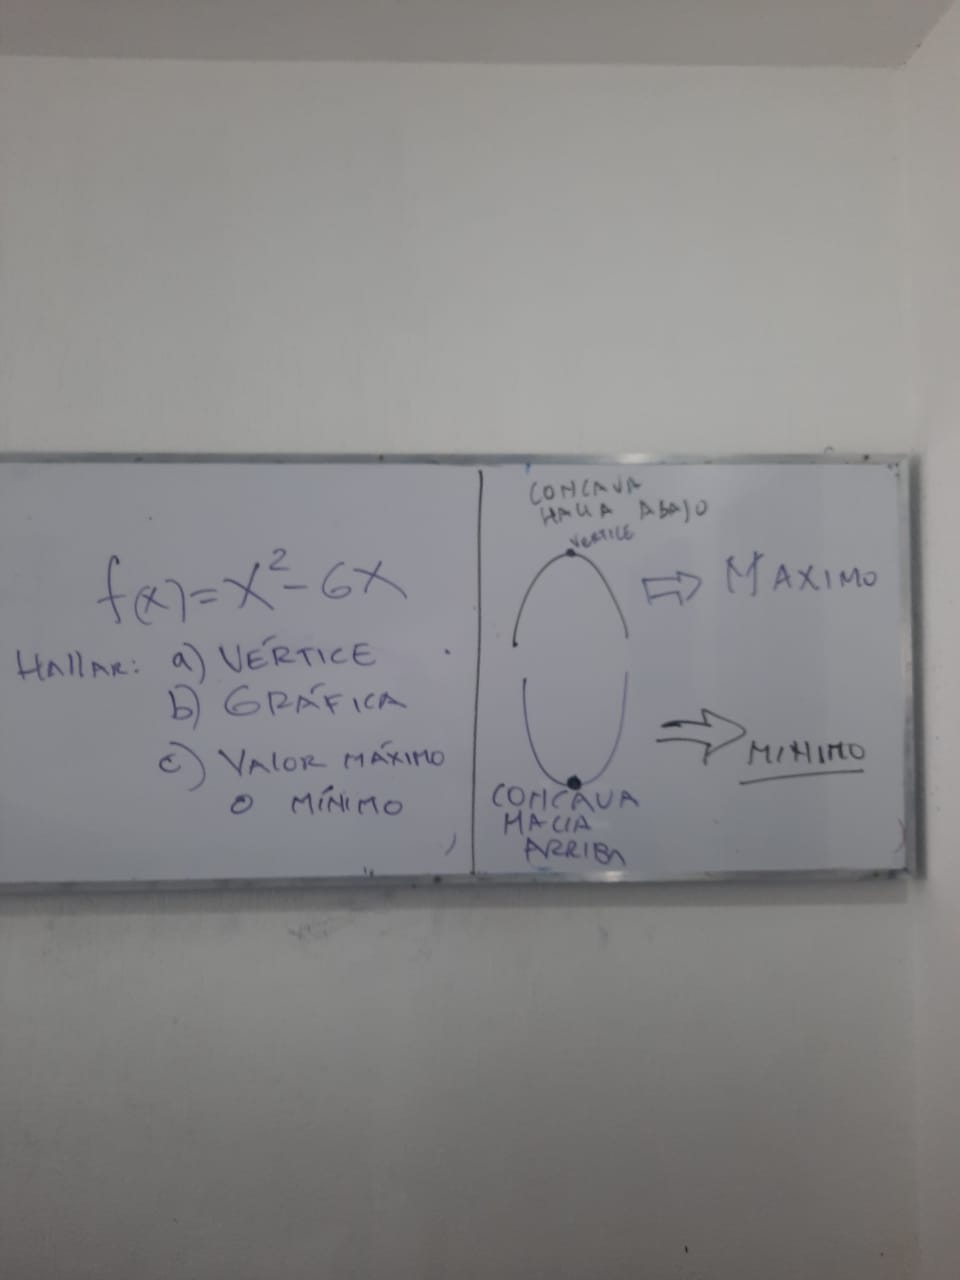 f(x)=x²-6x
Hallar: a) VÉRTICE
b) GRÁFICA
c) VALOR MÁXIMO
O MÍNIMO
CONCAVA
HACIA ABAJO
VERTICE
MAXIMO
MINIMO
CONCAVA
HACIA
ARRIBA